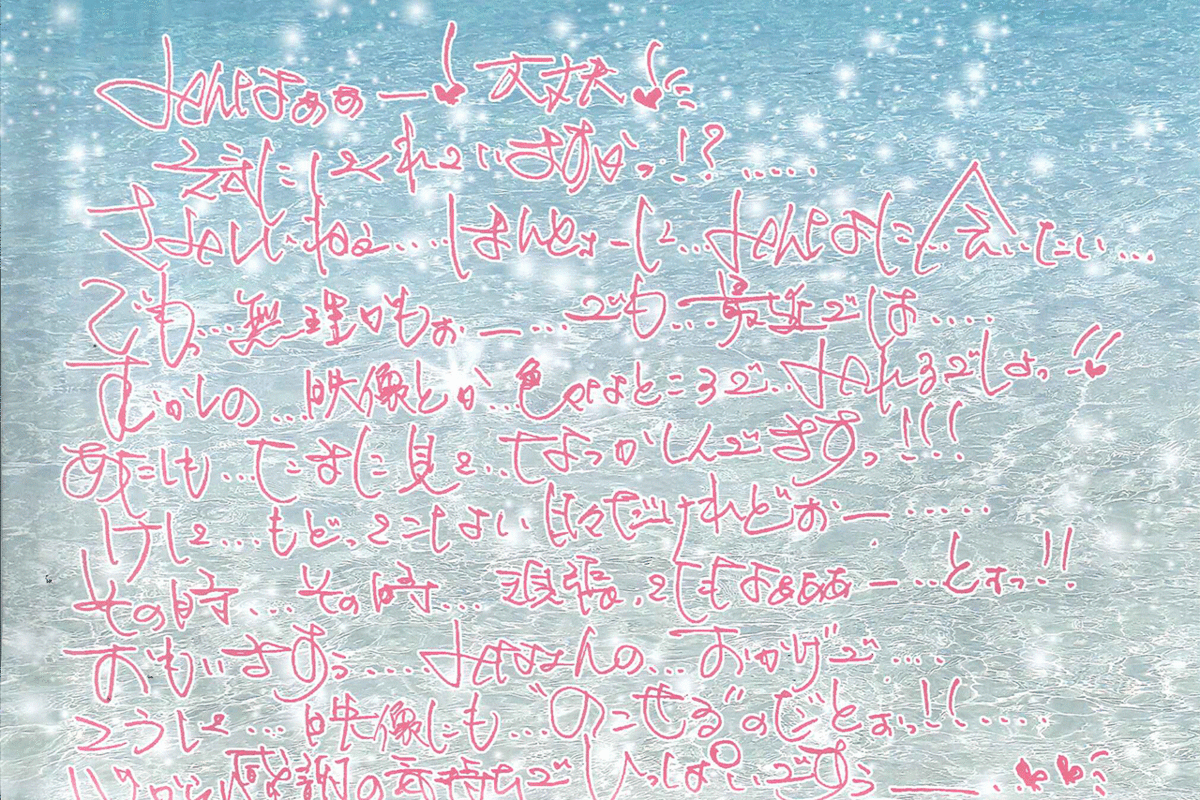 みんなぁぁー 大丈夫
元気にしてくれていますかっ!?.....
さみしいねぇ...ほんとぉーに...みんなに...会...えたい...
でもっ...無理かもぉー....でも...最近では.....
むかしの...映像とか...色んなところで...みれるでしょっー!!
あたしも...たまに見て...なつかしんでますっ!!!
けして...もどってこない日々だけれどぉー......
その時...その時...頑張ってたもなぁぁぁー...とぉっ!!
おもいますぅ....みなさんの...おかげで....
こうして...映像にも...“のこせる”のだとぉっ!!....
感謝の気持ちでいっぱいですぅー